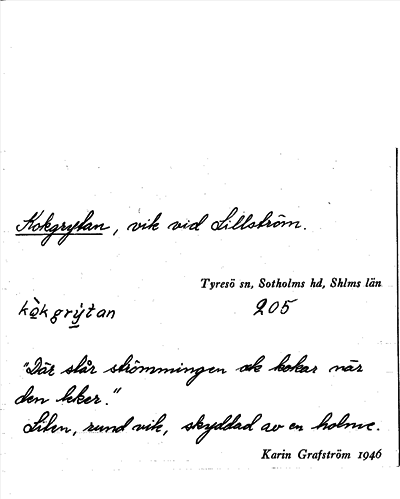 Kokgrytan, vik vid Lillström.
Tyresö sn, Sotholms hd, Shlms län
kò̲kgrỳ̲tan 205
"Där slår strömmingen ok kokar när
den leker."
Liten, rund vik, skyddad av en holme.
Karin Grafström 1946